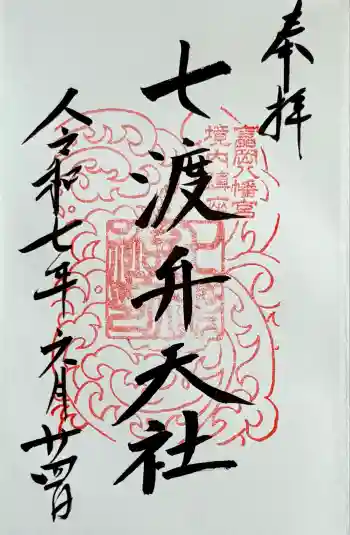 奉拝
富岡八幡宮
境内鎮座
七渡弁天社
令和七年六月廿四日